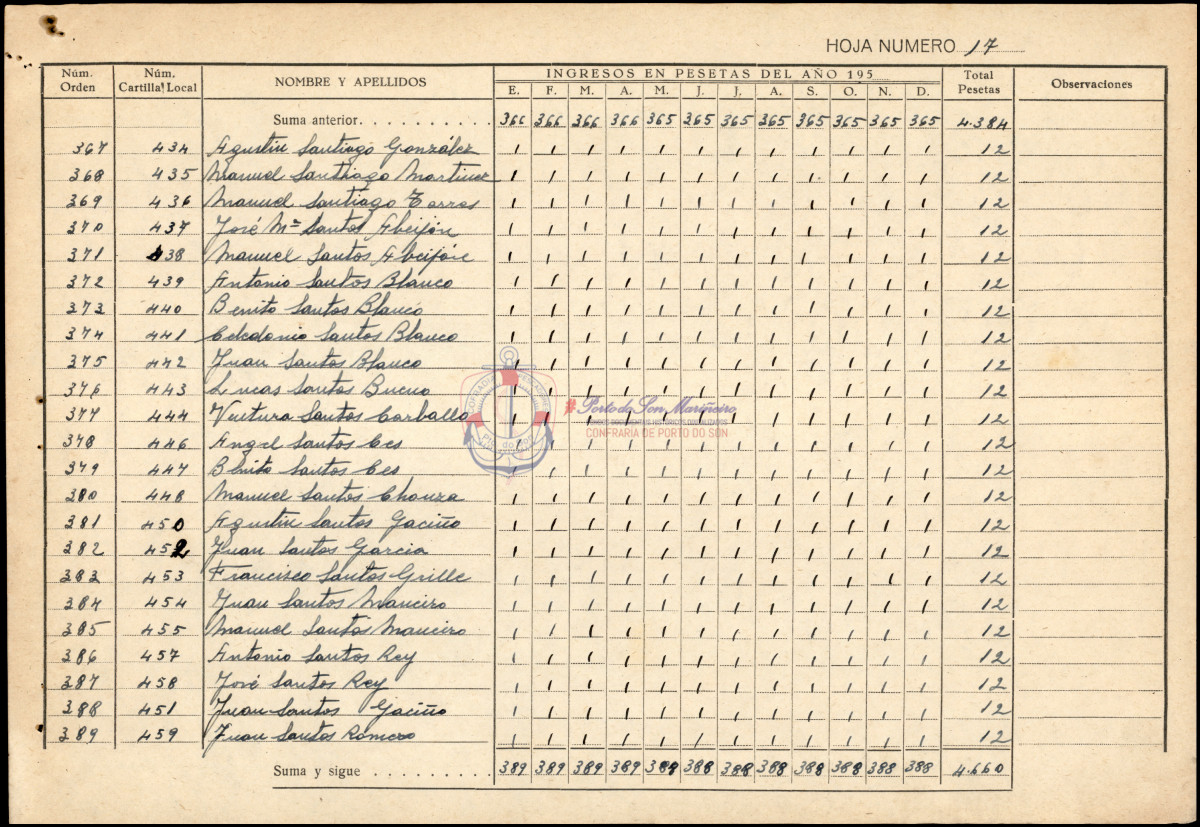 HOJA NUMERO 17
Núm. Orden | Núm. Cartilla Local | NOMBRE Y APELLIDOS | INGRESOS EN PESETAS DEL AÑO 195 | Total Pesetas | Observaciones
E. F. M. A. M. J. J. A. S. O. N. D.
Suma anterior 366 366 366 366 365 365 365 365 365 365 365 365 4.384
367 434 Agustin Santiago González 1 1 1 1 1 1 1 1 1 1 1 1 12
368 435 Manuel Santiago Martinez 1 1 1 1 1 1 1 1 1 1 1 1 12
369 436 Manuel Santiago Torres 1 1 1 1 1 1 1 1 1 1 1 1 12
370 437 José Mª Santos Abeijón 1 1 1 1 1 1 1 1 1 1 1 1 12
371 438 Manuel Santos Abeijón 1 1 1 1 1 1 1 1 1 1 1 1 12
372 439 Antonio Santos Blanco 1 1 1 1 1 1 1 1 1 1 1 1 12
373 440 Benito Santos Blanco 1 1 1 1 1 1 1 1 1 1 1 1 12
374 441 Celedonio Santos Blanco 1 1 1 1 1 1 1 1 1 1 1 1 12
375 442 Juan Santos Blanco 1 1 1 1 1 1 1 1 1 1 1 1 12
376 443 Lucas Santos Bueno 1 1 1 1 1 1 1 1 1 1 1 1 12
377 444 Ventura Santos Carballo 1 1 1 1 1 1 1 1 1 1 1 1 12
378 446 Angel Santos Ces 1 1 1 1 1 1 1 1 1 1 1 1 12
379 447 Benito Santos Ces 1 1 1 1 1 1 1 1 1 1 1 1 12
380 448 Manuel Santos Chouza 1 1 1 1 1 1 1 1 1 1 1 1 12
381 450 Agustin Santos Gaciño 1 1 1 1 1 1 1 1 1 1 1 1 12
382 452 Juan Santos Garcia 1 1 1 1 1 1 1 1 1 1 1 1 12
383 453 Francisco Santos Grille 1 1 1 1 1 1 1 1 1 1 1 1 12
384 454 Juan Santos Maneiro 1 1 1 1 1 1 1 1 1 1 1 1 12
385 455 Manuel Santos Maneiro 1 1 1 1 1 1 1 1 1 1 1 1 12
386 457 Antonio Santos Rey 1 1 1 1 1 1 1 1 1 1 1 1 12
387 458 José Santos Rey 1 1 1 1 1 1 1 1 1 1 1 1 12
388 451 Juan Santos Gaciño 1 1 1 1 1 1 1 1 1 1 1 1 12
389 459 Juan Santos Romero 1 1 1 1 1 1 1 1 1 1 1 1 12
Suma y sigue 389 389 389 389 388 388 388 388 388 388 388 388 4.660
# Porto do Son Mariñeiro
CONFRARIA DE PORTO DO SON